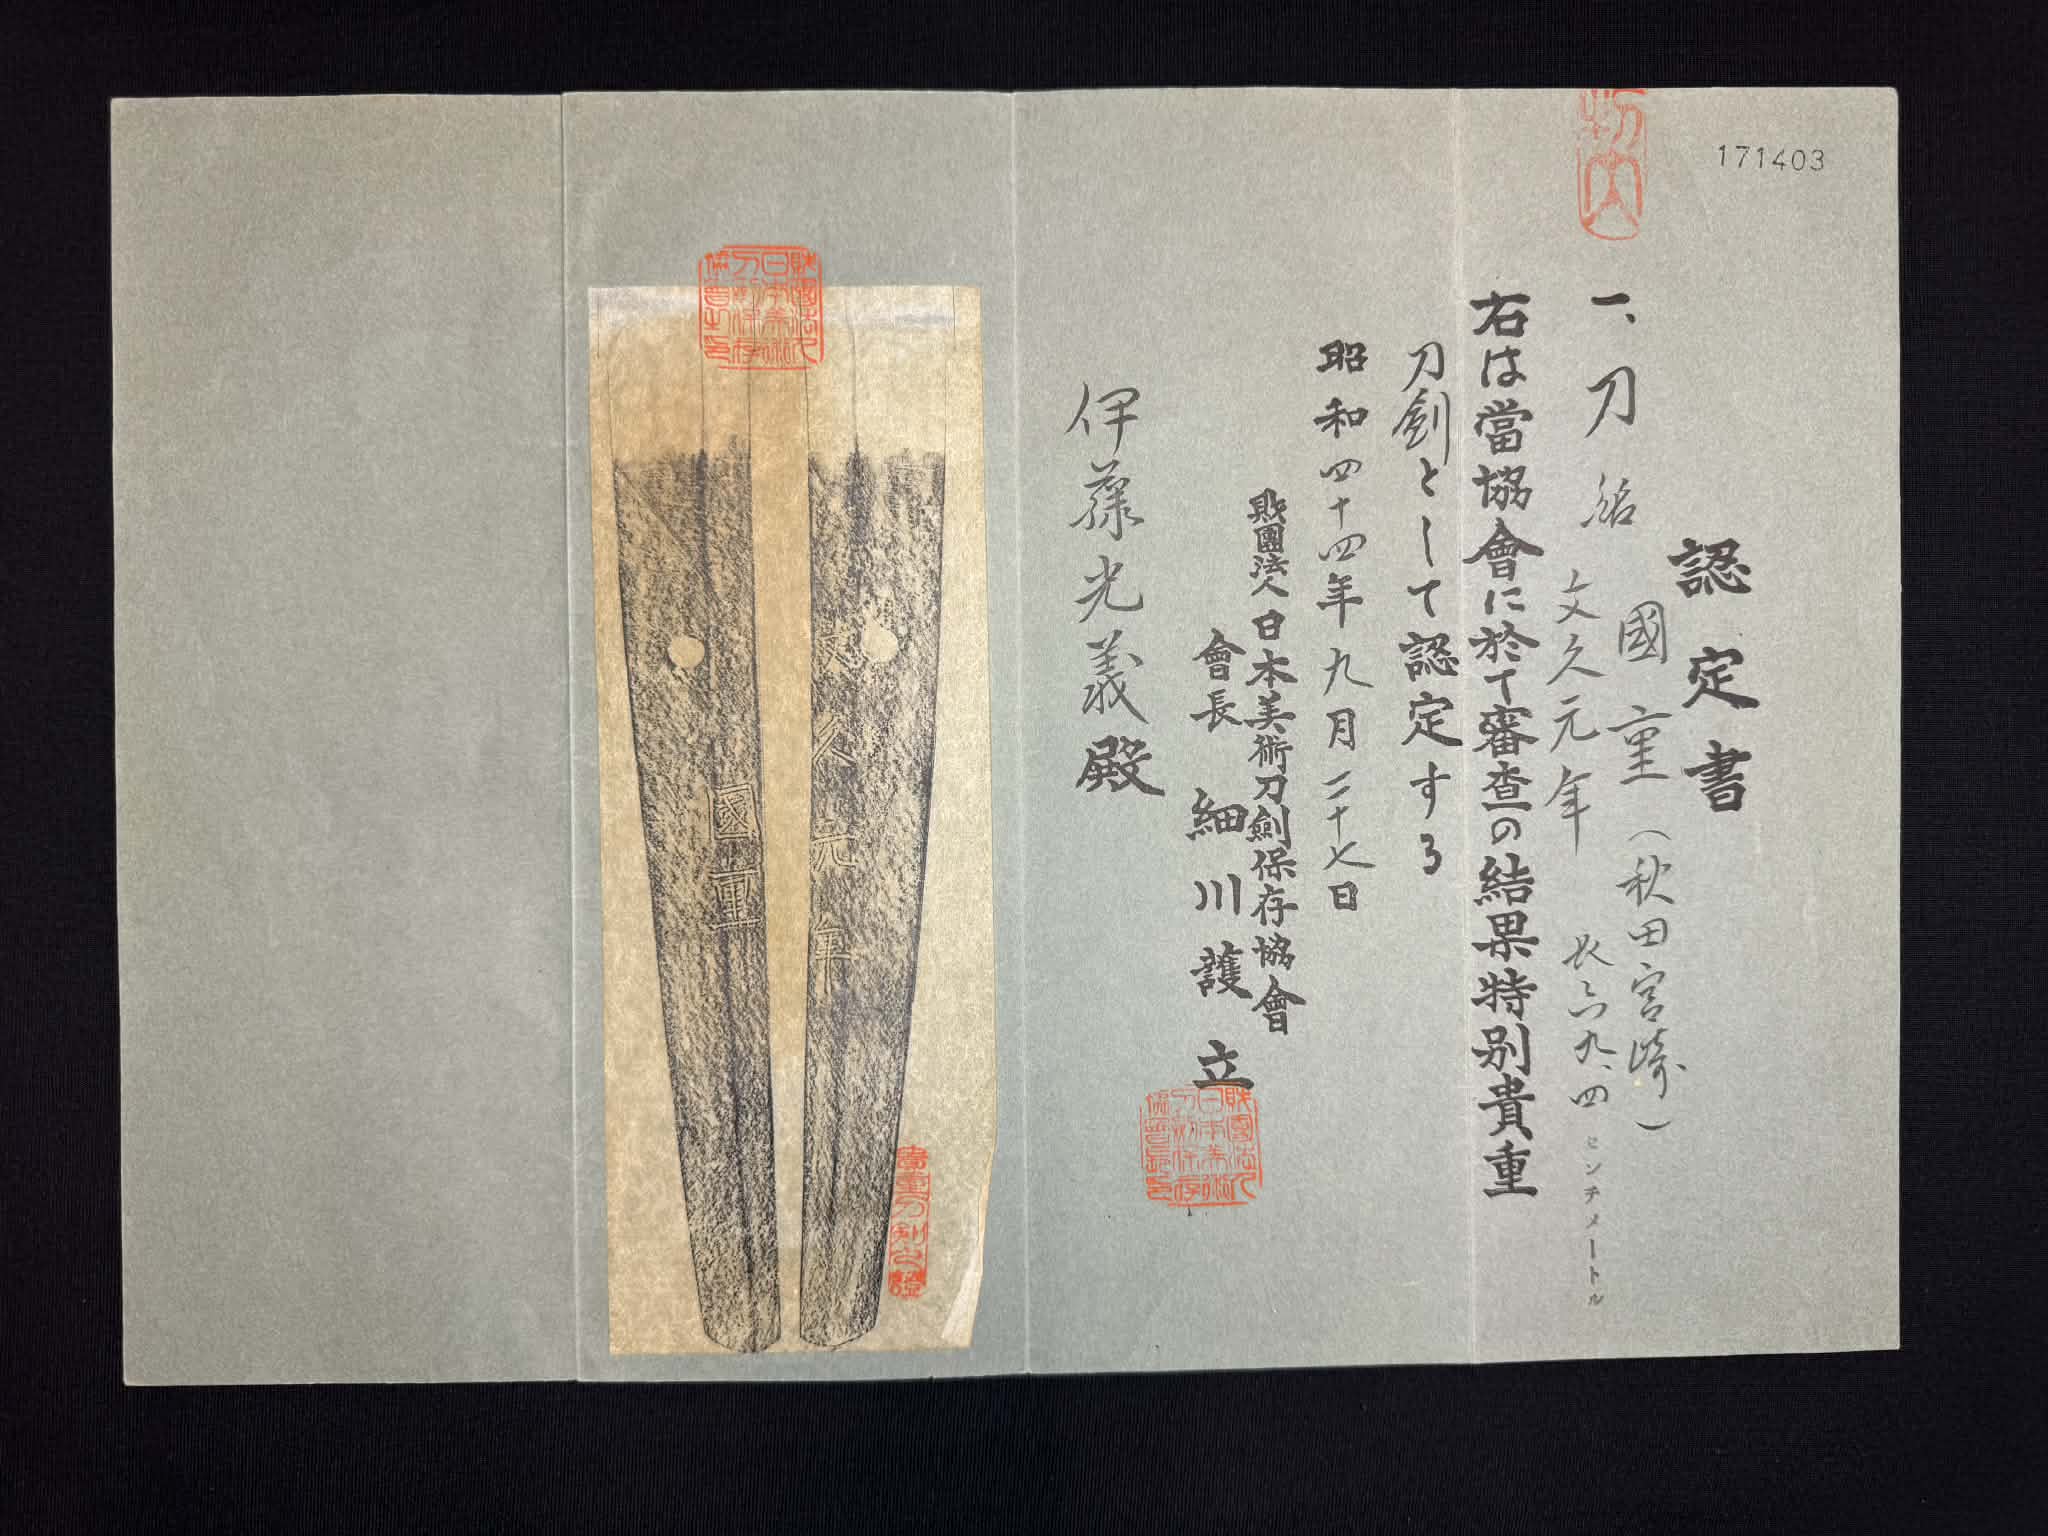 171403
認定書
一、刀 銘 國重(秋田宮崎)
文久元年 長六九、四センチメートル
右は當協會に於て審査の結果特別貴重
刀劍として認定する
昭和四十四年九月二十七日
財團法人日本美術刀劍保存協會
會長 細川護立
伊藤光義殿
財團法人日本美術刀剣保存協會長印
財團法人日本美術刀剣保存協會之印
文久元年
國重
貴重刀剣之證